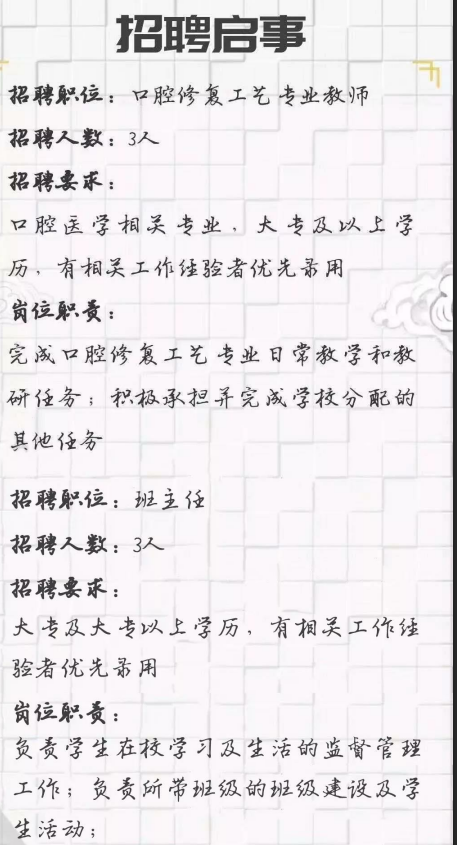 招聘启事
招聘职位：口腔修复工艺专业教师
招聘人数：3人
招聘要求：
口腔医学相关专业，大专及以上学
历，有相关工作经验者优先录用
岗位职责：
完成口腔修复工艺专业日常教学和教
研任务；积极承担并完成学校分配的
其他任务
招聘职位：班主任
招聘人数：3人
招聘要求：
大专及大专以上学历，有相关工作经
验者优先录用
岗位职责：
负责学生在校学习及生活的监督管理
工作；负责所带班级的班级建设及学
生活动；